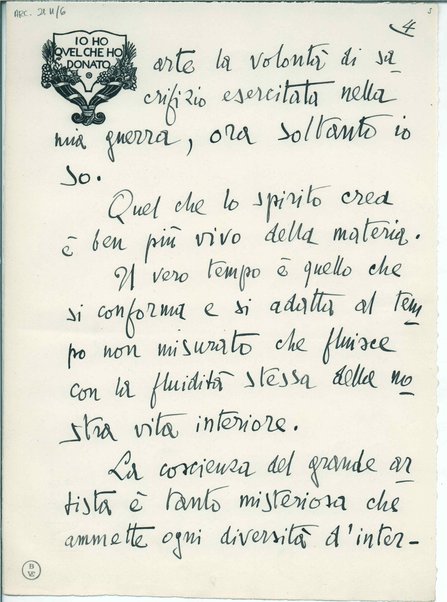 ARC. 21 II/6
4
IO HO
QVEL CHE HO
DONATO
arte la volontà di sa-
crifizio esercitata nella
mia guerra, ora soltanto io
so.
Quel che lo spirito crea
è ben più vivo della materia.
Il vero tempo è quello che
si conforma e si adatta al tem
po non misurato che fluisce
con la fluidità stessa della no
stra vita interiore.
La coscienza del grande ar
tista è tanto misteriosa che
ammette ogni diversità d'inter-